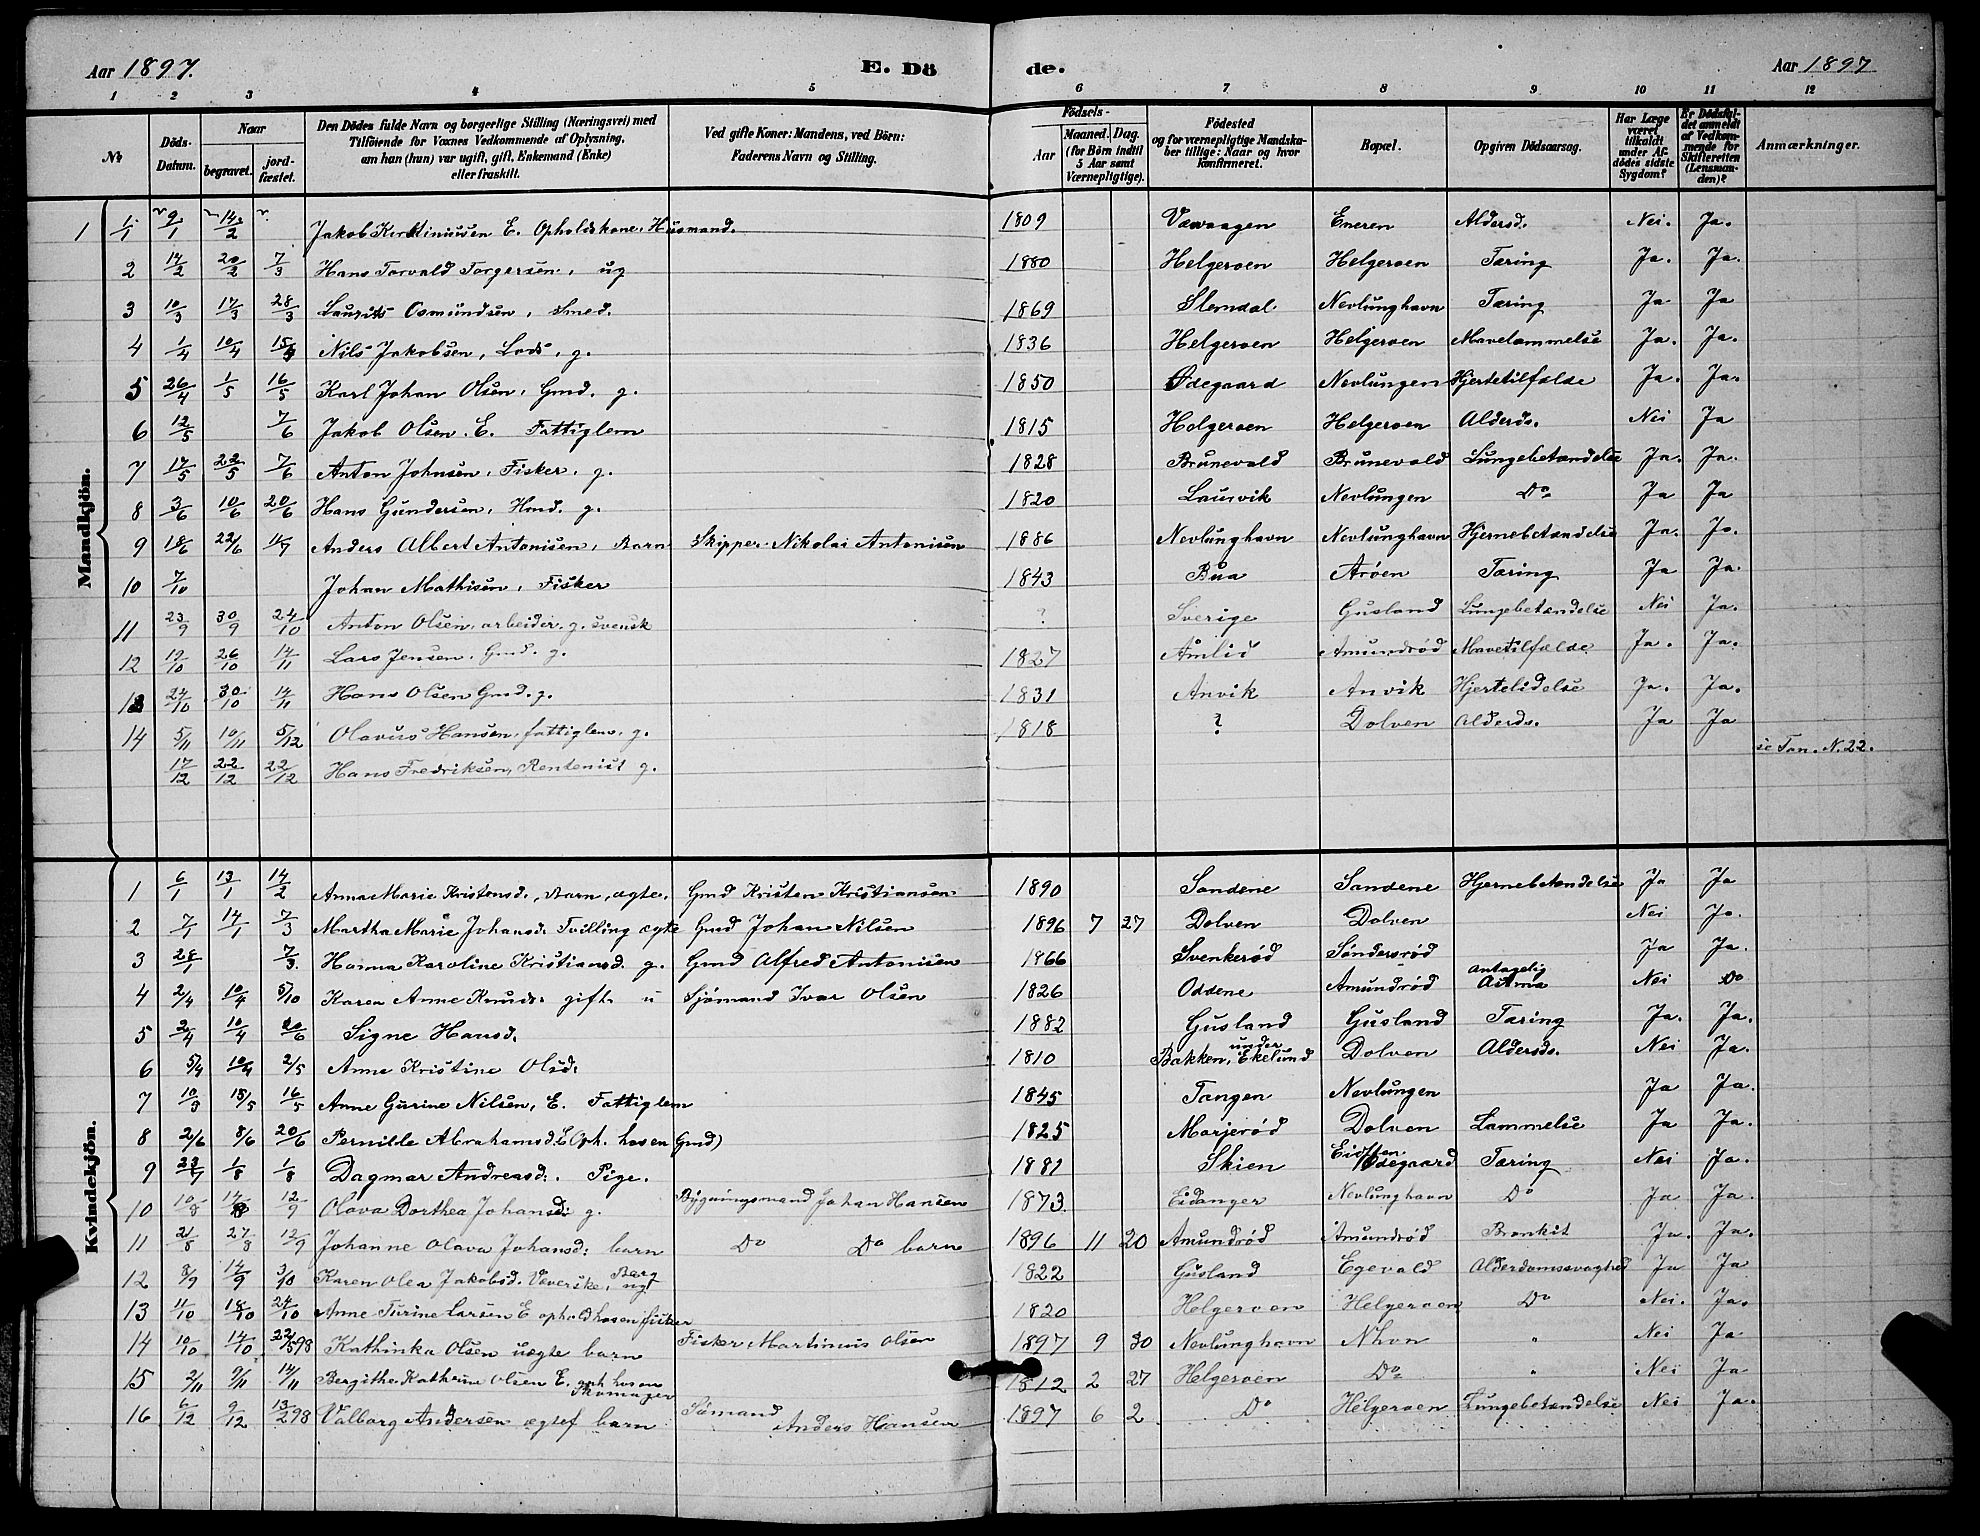 Aar 1897. E. Dö de. Aar 1897
1 2 3 4 5 6 7 8 9 10 11 12
№ Döds-Datum. Naar begravet. jordfæstet. Den Dödes fulde Navn og borgerlige Stilling (Næringsvei) med Tilföiende for Voxnes Vedkommende af Oplysning, om han (hun) var ugift, gift, Enkemand (Enke) eller fraskilt. Ved gifte Koner: Mandens, ved Börn: Faderens Navn og Stilling. Födsels- Aar Maaned. Dag. (for Börn indtil 5 Aar samt Værnepligtige). Födested og for værnepligtige Mandskaber tillige: Naar og hvor konfirmeret. Bopæl. Opgiven Dödsaarsag. Har Læge været tilkaldt under Afdödes sidste Sygdom? Er Dödsfaldet anmeldt af Vedkommende for Skifteretten (Lensmanden)? Anmærkninger.
Mandkjön.
1 1/1 9/1 14/2 Jakob Kristiniusen E. Opholdskone. Husmand. 1809 Eneren Aldersd. Nei. Ja.
2 14/2 20/2 7/3 Hans Torvald Torgersen, ug 1880 Helgeroen Helgeroen Tæring Ja. Ja.
3 10/3 17/3 28/3 Laurits Osmundsen, Smed. 1869 Slemdal Nevlunghavn Tæring Ja Ja
4 1/4 10/4 Nils Jakobsen, Lods, g. 1836 Helgeroen Helgeroen Mavelammelse Ja. Ja.
5 26/4 1/5 16/5 Karl Johan Olsen, Gmd. g. 1850 Ødegaard Nevlungen Hjertetilfælde Ja. Ja.
6 12/5 7/6 Jakob Olsen. E. Fattiglem 1815 Helgeroen Helgeroen Alderds. Nei Ja
7 17/5 22/5 7/6 Anton Johnsen, Fisker, g. 1828 Brunevald Brunevald Lungebetændelse Ja. Ja.
8 3/6 10/6 20/6 Hans Gundersen, Hmd. g. 1820 Laurvik Nevlungen Do Ja Ja
9 18/6 22/6 11/7 Anders Albert Antonisen, Barn Skipper Nikolai Antonisen 1886 Nevlunghavn Nevlunghavn Hjernebetændelse Ja. Ja.
10 7/10 Johan Mathisen, Fisker 1843 Bua Arøen Tæring Ja Ja.
11 23/9 30/9 24/10 Anton Olsen, arbeider, g. svensk ? Sverige Gusland Lungebetændelse Nei Ja.
12 19/10 26/10 14/11 Lars Jensen, Gmd. g. 1827 Amlid Amundrød Mavetilfælde. Ja. Ja.
13 24/10 30/10 14/11 Hans Olsen Gmd. g. 1831 Anvik Anvik Hjertelidelse Ja. Ja.
14 5/11 10/11 5/12 Olavus Hansen, fattiglem, g. 1818 ? Dolven Alderds. Ja Ja
17/12 22/12 22/12 Hans Fredriksen, Rentenist g. se Jan. N. 22.
Kvindekjön.
1 6/1 13/1 14/2 Anna Marie Kristensd., Barn, ægte. Gmd Kristen Kristiansen 1890 Sandene Sandene Hjernebetændelse Ja Ja
2 7/1 14/1 7/3 Martha Marie Johansd. Tvilling ægte Gmd Johan Nilsen 1896 7 27 Dolven Dolven Nei Ja.
3 28/1 7/3. Hanna Karoline Kristiansd. g. Gmd Alfred Antonisen 1866 Svenkerød Søndersrød Ja Ja.
4 2/4 10/4 5/10 Karen Anne Knudsd. gift u Sjømand Ivar Olsen 1826 Oddene Amundrød antagelig Astma Nei Do
5 2/4 10/4 20/6 Signe Hansd. 1882 Gusland Gusland Tæring Ja. Ja.
6 5/4 10/4 2/5 Anne Kristine Olsd. 1810 Bakken, under Ekelund Dolven Aldersds. Nei Ja.
7 10/3 18/5 16/5 Anne Gurine Nilsen, E. Fattiglem 1845 Tangen Nevlungen Ja Ja.
8 2/6 8/6 20/6 Pernille Abrahamsd. E. Oph. hosen Gmd) 1825 Marjerød Dolven Lammelse Ja Ja.
9 23/7 1/8 1/8 Dagmar Andreasd. Pige. 1881 Skien Ødegaard Tæring Nei Ja.
10 10/8 14/8 12/9 Olava Dorthea Johansd: g. Bygningsmand Johan Hansen 1873 Eidanger Nevlunghavn Do Ja Ja.
11 21/8 27/8 12/9 Johanne Olava Johansd: barn Do Do barn 1896 11 20 Amundrød Amundrød Bronkit Ja. Ja.
12 8/9 14/9 3/10 Karen Olea Jakobsd. Væverske, ugt 1822 Gusland Egevald Alderdomssvaghed Ja Ja
13 11/10 18/10 24/10 Anne Turine Larsen E ophold hosen fisker 1820 Helgeroen Helgeroen Do Nei. Ja.
14 10/10 14/10 22/5 98 Kathinka Olsen uægte barn Fisker Martinius Olsen 1897 9 30 Nevlunghavn Nhvn " Nei Ja
15 2/11 9/11 14/11 Bergithe Kathrine Olsen E. oph hosen Skomager 1812 2 27 Helgeroen Do " Nei Ja
16 6/12 9/12 13/2 98 Valborg Andersen ægtef barn Sømand Anders Hansen 1897 6 2 Do Helgeroen Lungebetændelse Nei Ja.